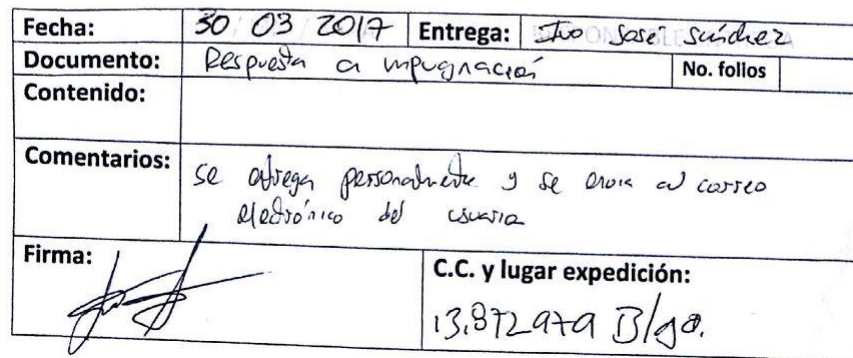 Fecha: 30 03 2017 Entrega: Ivo José Sánchez
Documento: Respuesta a impugnación No. folios
Contenido:
Comentarios: se entrega personalmente y se envia al correo
electrónico del usuario
Firma: C.C. y lugar expedición:
13.872979 B/ga.